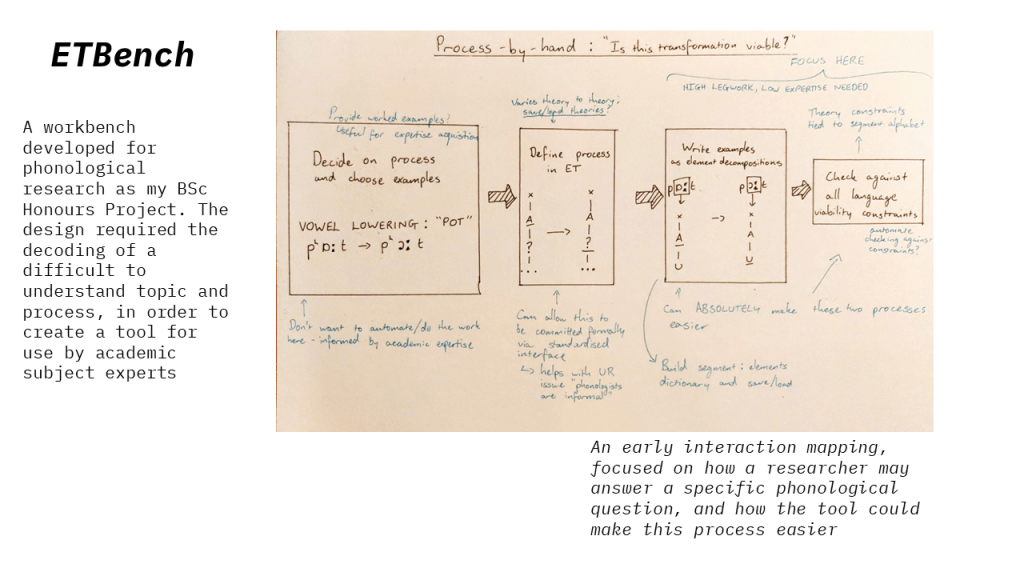 ETBench
A workbench
developed for
phonological
research as my BSc
Honours Project. The
design required the
decoding of a
difficult to
understand topic and
process, in order to
create a tool for
use by academic
subject experts
Process-by-hand : "Is this transformation viable?"
FOCUS HERE
HIGH LEGWORK, LOW EXPERTISE NEEDED
Provide worked examples?
Useful for expertise acquistion
Decide on process
and choose examples
VOWEL LOWERING : "POT"
pʰɒː t → pʰɔː t
Don't want to automate/do the work
here - informed by academic expertise
Varies theory to theory;
save/load theories?
Define process
in ET
× ×
| |
A |
| A
| |
? → ?
| |
... ...
Can allow this to
be committed formally
via standardised
interface
↳ helps with UR
issue "phonologists
are informal"
Write examples
as element decompositions
pɒːt pɔːt
× → ×
| |
| A
A |
| |
U U
Can ABSOLUTELY make these two processes
easier
Build segment : elements
dictionary and save/load
Theory constraints
tied to segment alphabet
Check against
all language
viability constraints
automate
checking against
constraints?
An early interaction mapping,
focused on how a researcher may
answer a specific phonological
question, and how the tool could
make this process easier